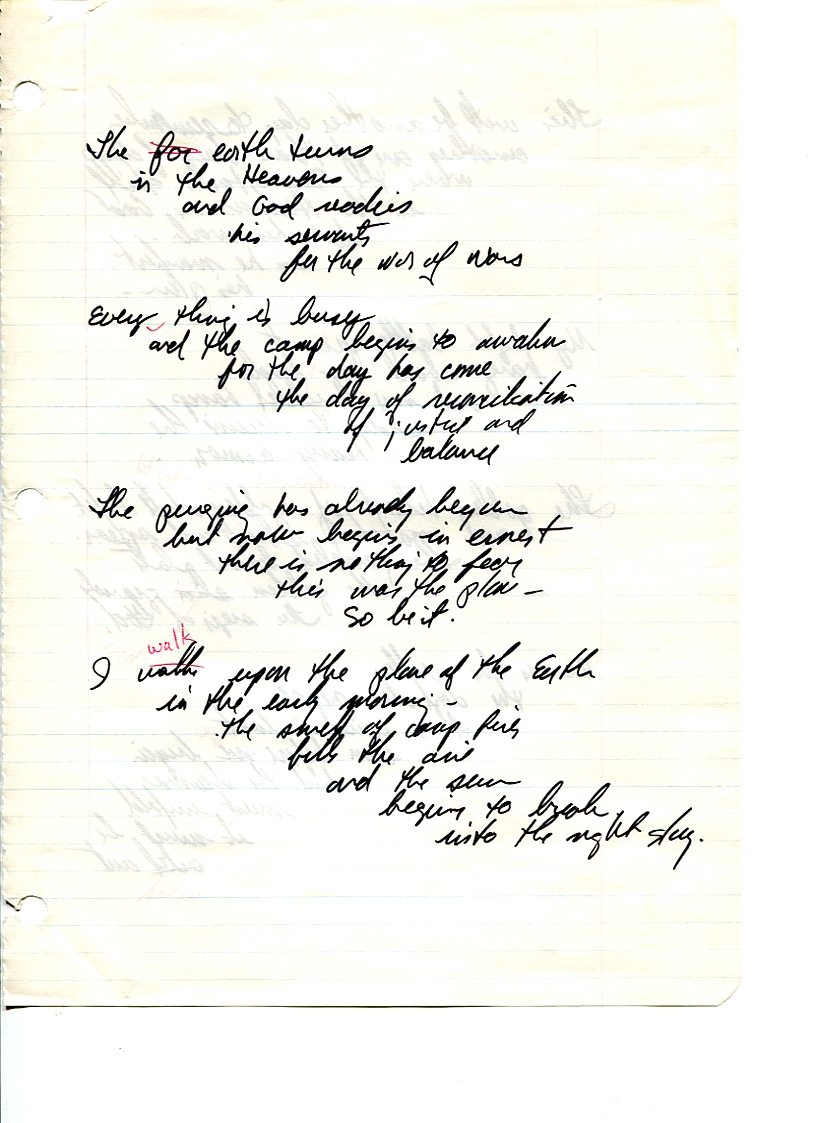 The for earth turns
in the Heavens
and God readies
his servants
for the war of wars
Every thing is busy
and the camp begins to awaken
for the day has come
the day of reconciliation
of justice and
balance
The purging has already begun
but now begins in earnest
there is nothing to fear
this was the plan –
So be it.
walk
I walk upon the plane of the Earth
in the early morning –
the smell of camp fires
fills the air
and the sun
begins to break
into the night sky.